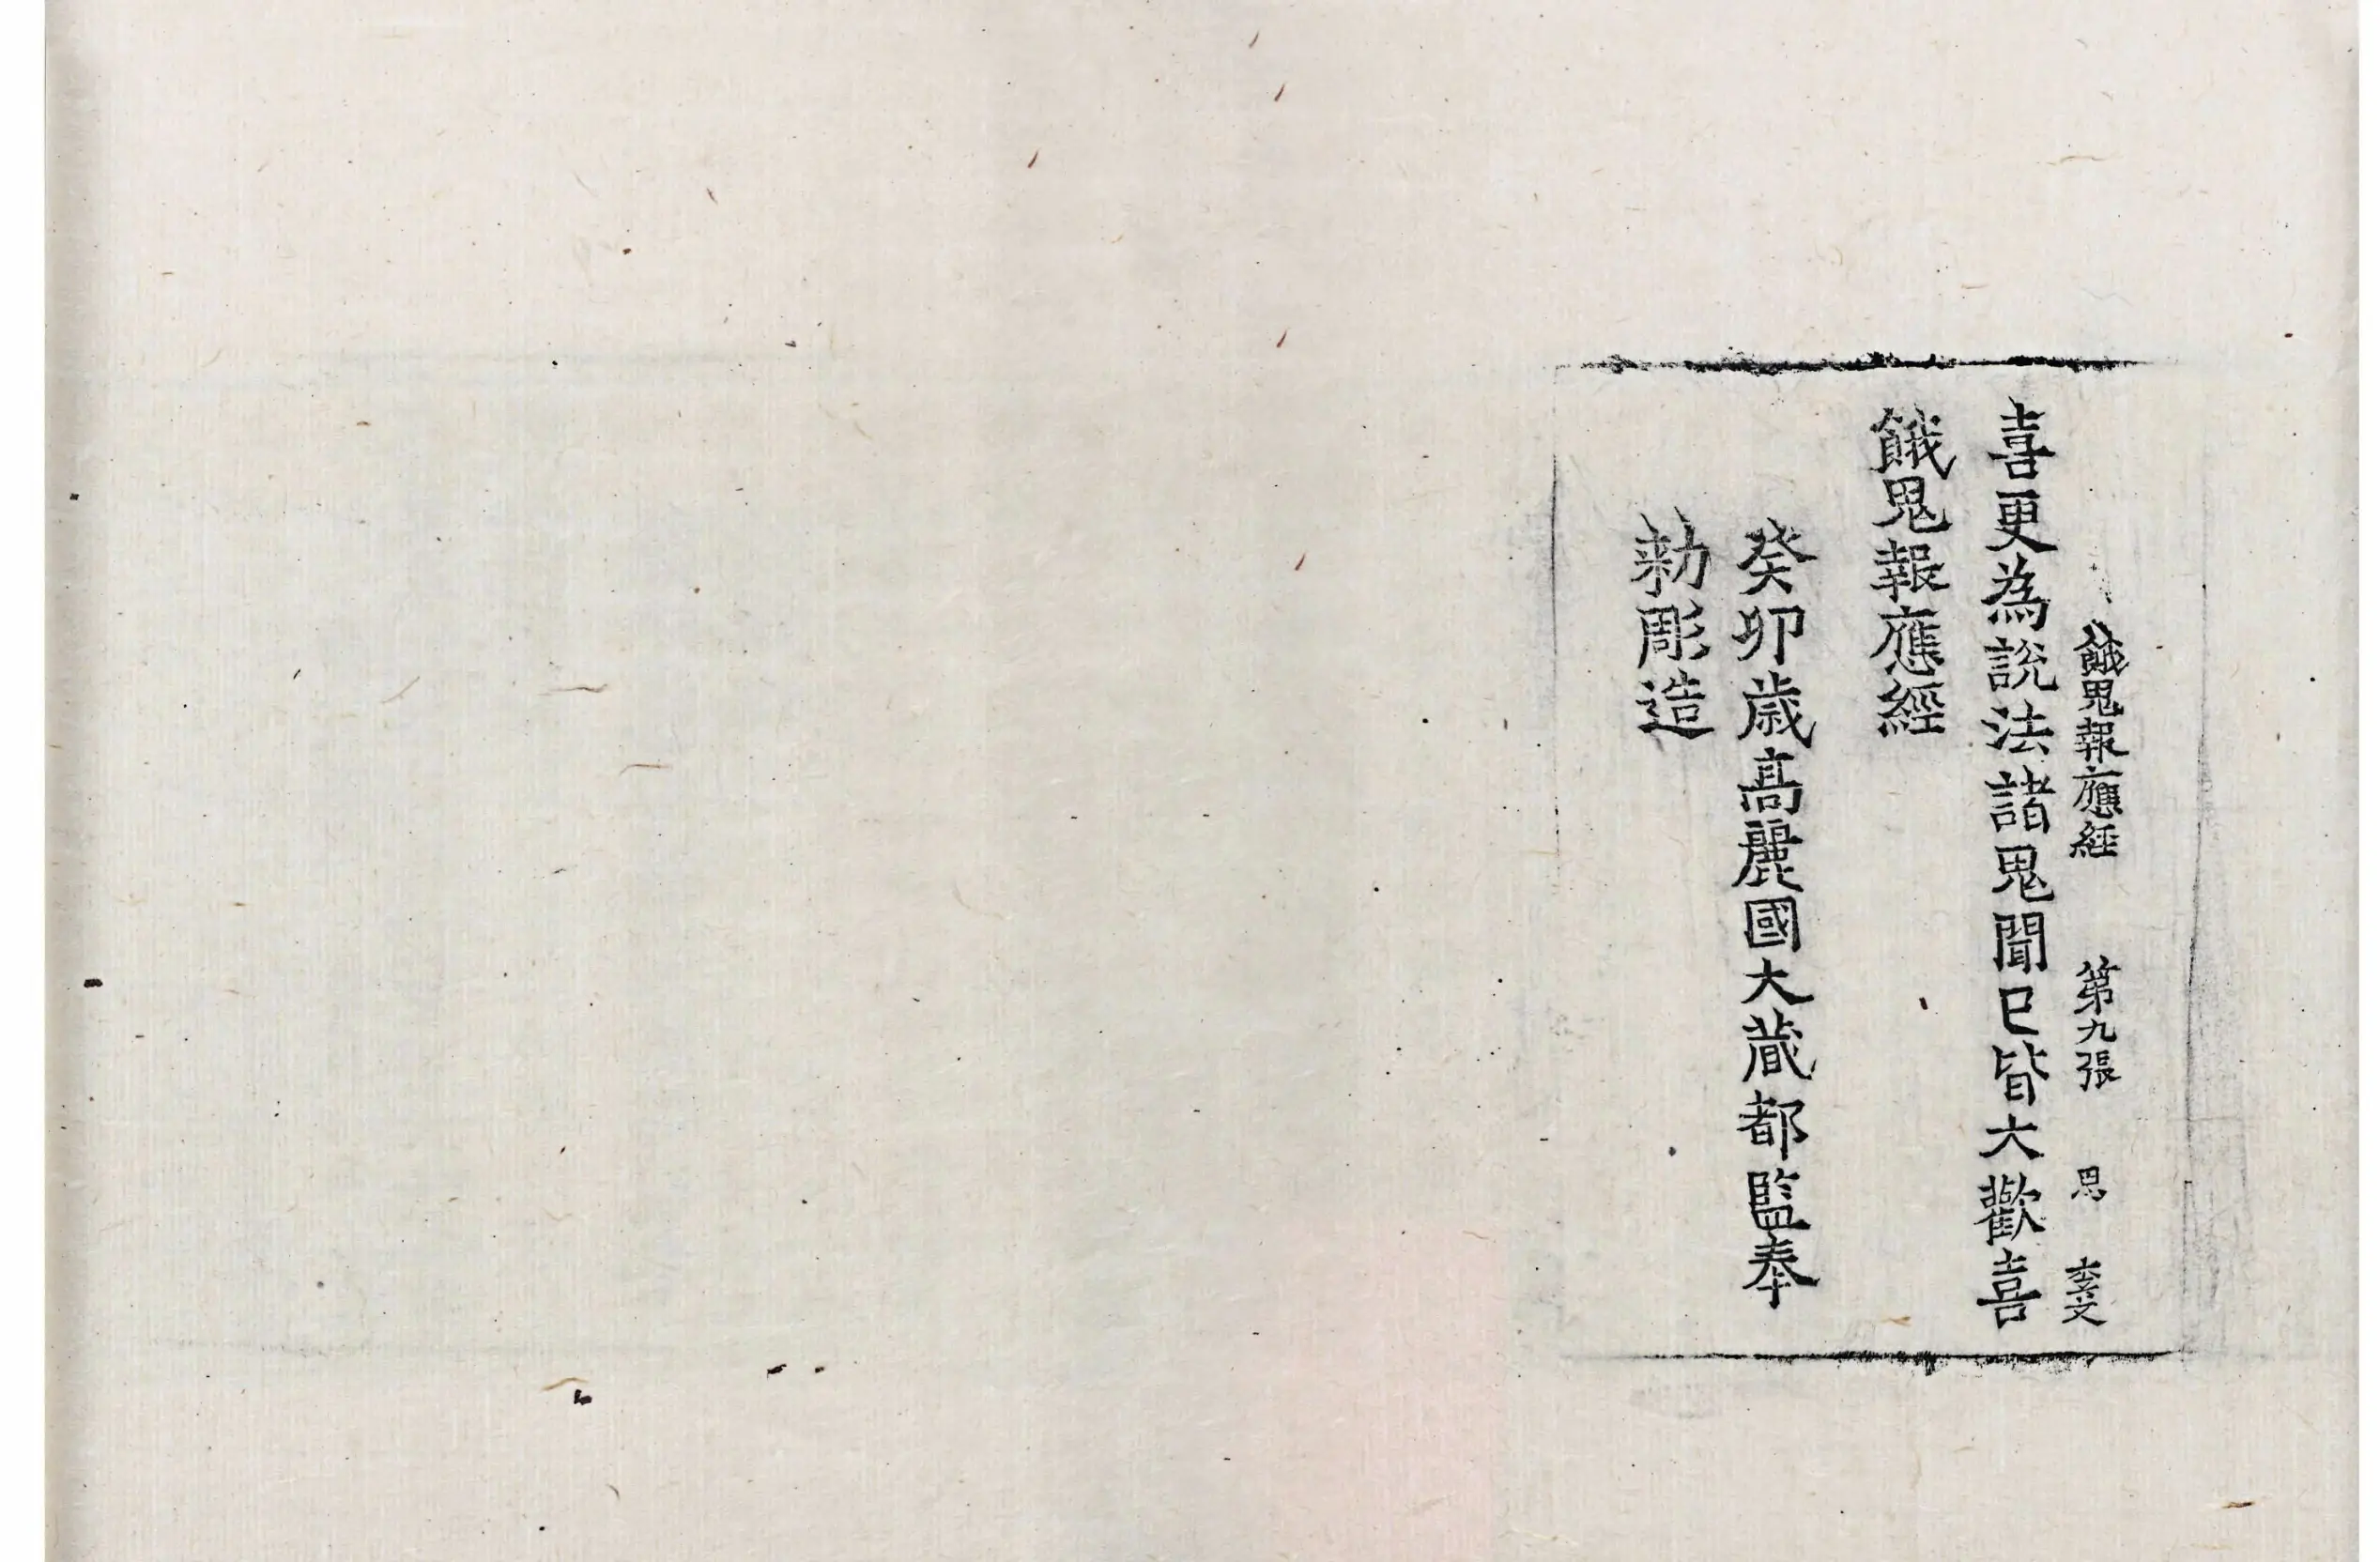 餓鬼報應經 第九張 思 李文
喜更為說法諸鬼聞已皆大歡喜
餓鬼報應經
癸卯歲高麗國大藏都監奉
勑彫造